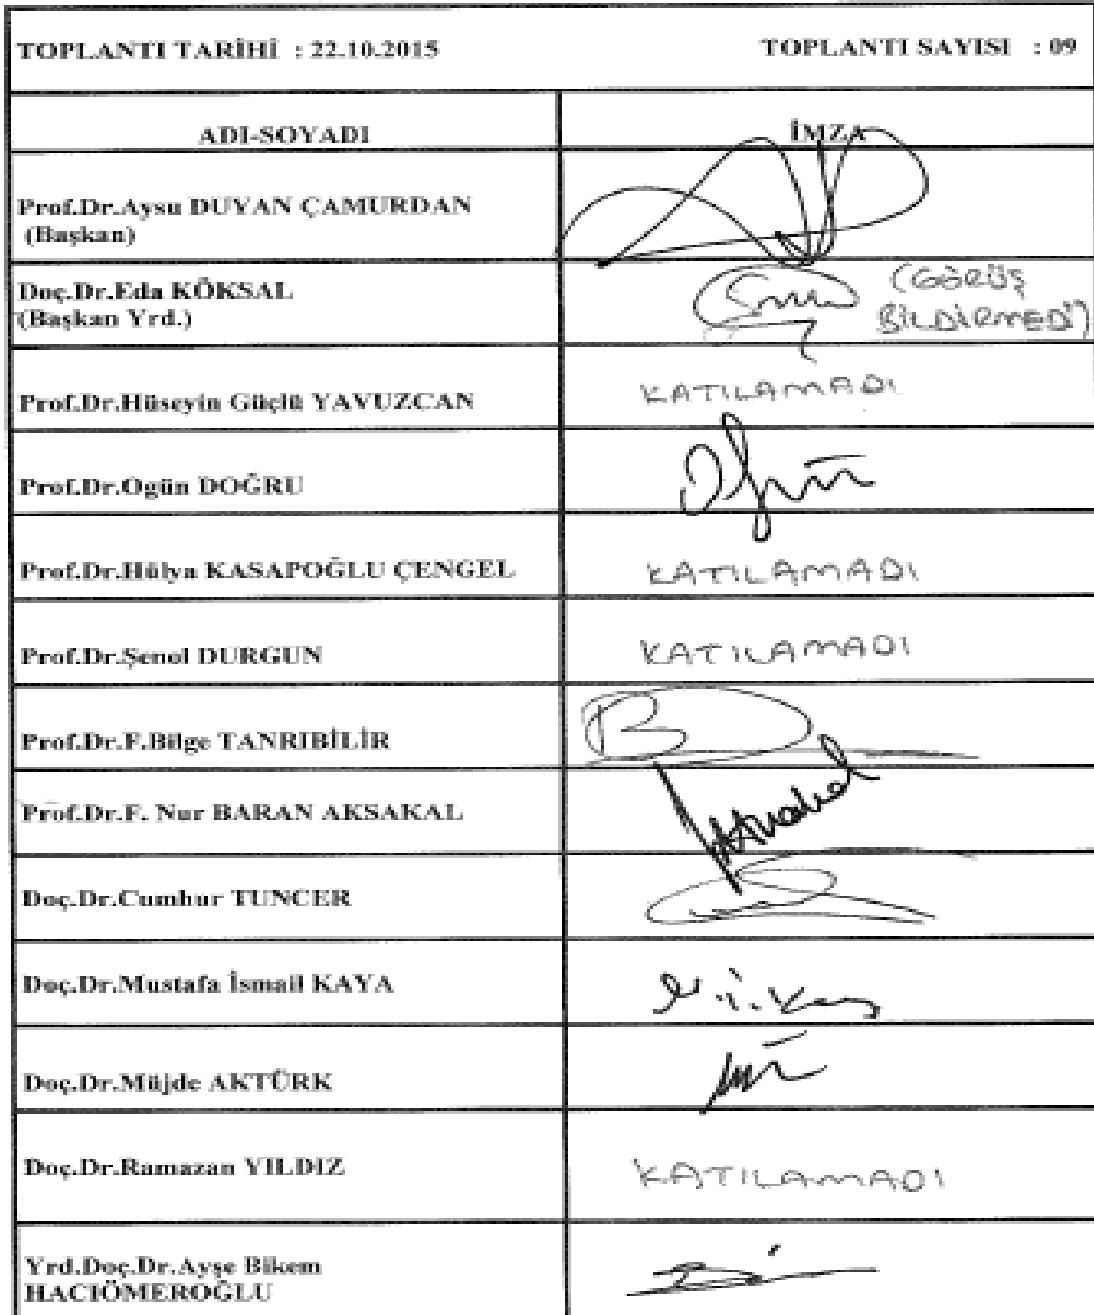 TOPLANTI TARİHİ : 22.10.2015 TOPLANTI SAYISI : 09
ADI-SOYADI İMZA
Prof.Dr.Aysu DUYAN ÇAMURDAN
(Başkan)
Doç.Dr.Eda KÖKSAL (GÖRÜŞ
(Başkan Yrd.) BİLDİRMEDİ)
Prof.Dr.Hüseyin Güçlü YAVUZCAN KATILAMADI
Prof.Dr.Ogün DOĞRU
Prof.Dr.Hülya KASAPOĞLU ÇENGEL KATILAMADI
Prof.Dr.Şenol DURGUN KATILAMADI
Prof.Dr.F.Bilge TANRIBİLİR
Prof.Dr.F. Nur BARAN AKSAKAL
Doç.Dr.Cumhur TUNCER
Doç.Dr.Mustafa İsmail KAYA
Doç.Dr.Müjde AKTÜRK
Doç.Dr.Ramazan YILDIZ KATILAMADI
Yrd.Doç.Dr.Ayşe Bikem
HACIÖMEROĞLU